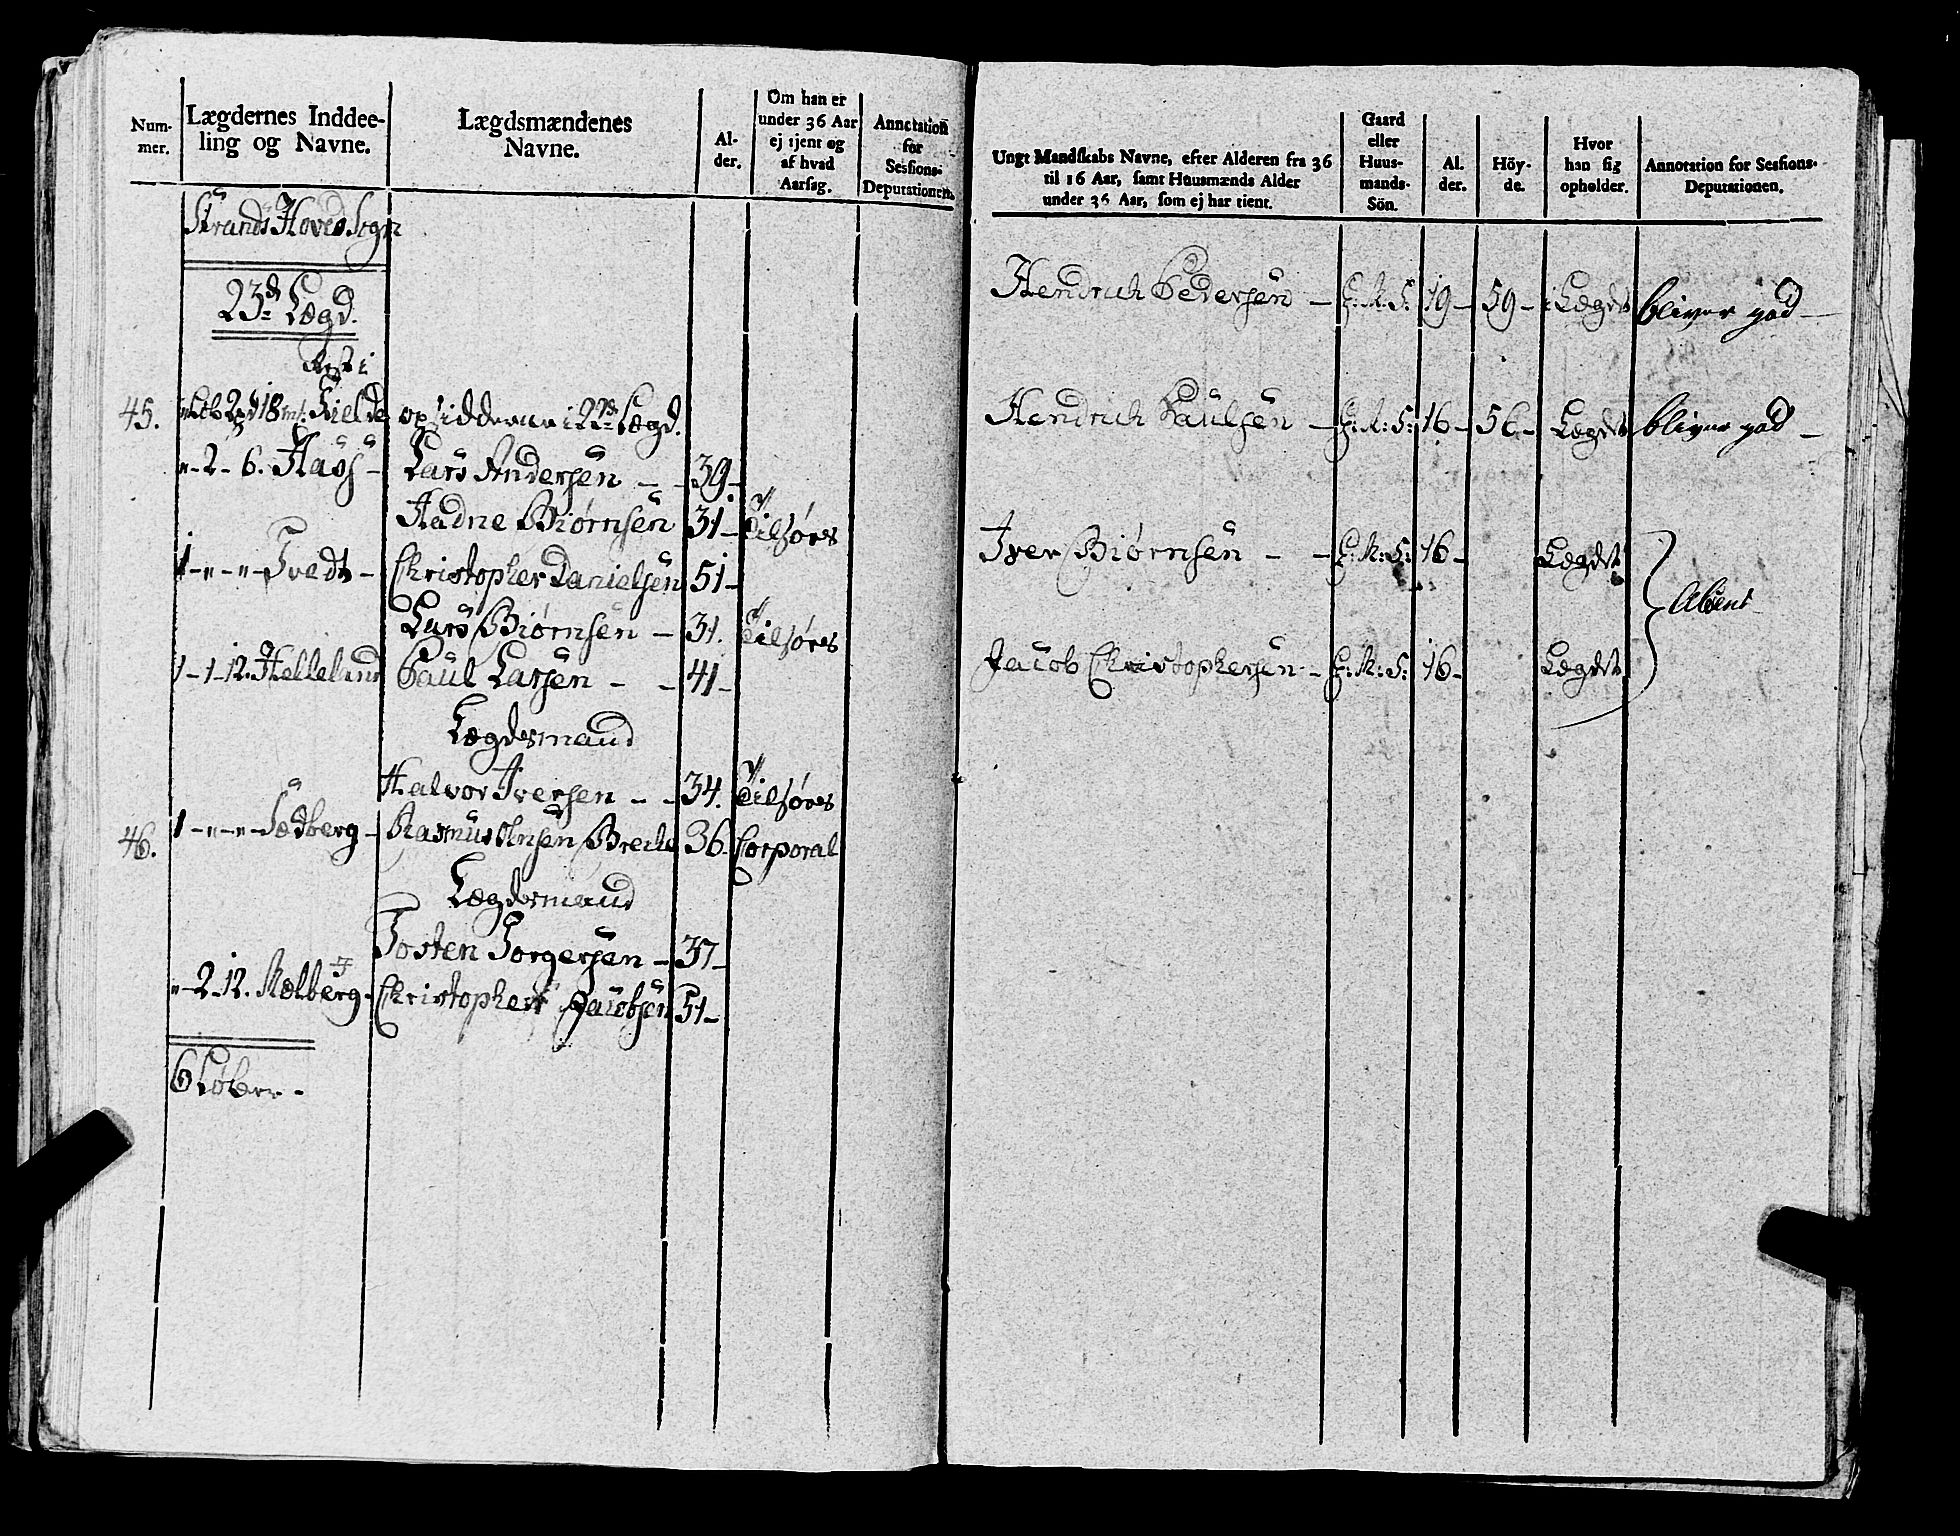 Num-
mer.
Lægdernes Inddee-
ling og Navne.
Lægdsmændenes
Navne.
Al-
der.
Om han er
under 36 Aar
ej tjent og
af hvad
Aarsag.
Annotation
for
Sessions-
Deputationen.
Strands Hoved Sogn
23de Lægd.
Rest i
45. 2 pd 18 mk. Fielde opsidderne i 22de Lægd.
"- 2 - 6. Haus - Lars Andersen - - 39 -
Hadne Biørnsen 31 - Tilsøes
1 - " - " - Tvedt - Christopher Danielsen 51 -
Lars Biørnsen - 31. Tilsøes
1 - 1 - 12. Helleland Paul Larsen - - 41 -
Lægdsmand
Halvor Iversen - - 34. Tilsøes
46. 1 - " - " - Sædberg - Rasmus Brecke 36. Corporal
Lægdsmand
Tosten Torgersen - 37 -
" - 2 - 12. Mælberg - Christopher Jacobsen 51 -
6 Løber -
Ungt Mandskabs Navne, efter Alderen fra 36
til 16 Aar, samt Huusmænds Alder
under 36 Aar, som ej har tient.
Gaard
eller
Huus-
mands-
Sön.
Al.
der.
Höy-
de.
Hvor
han sig
opholder.
Annotation for Sessions-
Deputationen.
Hendrich Pedersen - G: M: S: 19 - 59 - i Lægdet bliver god -
Hendrich Paulsen - G: M: S: 16 - 56 - Lægdet bliver god -
Iver Biørnsen - - G: M: S: 16 - Lægdet
Absent
Jacob Christophersen - G: M: S: 16 - Lægdet